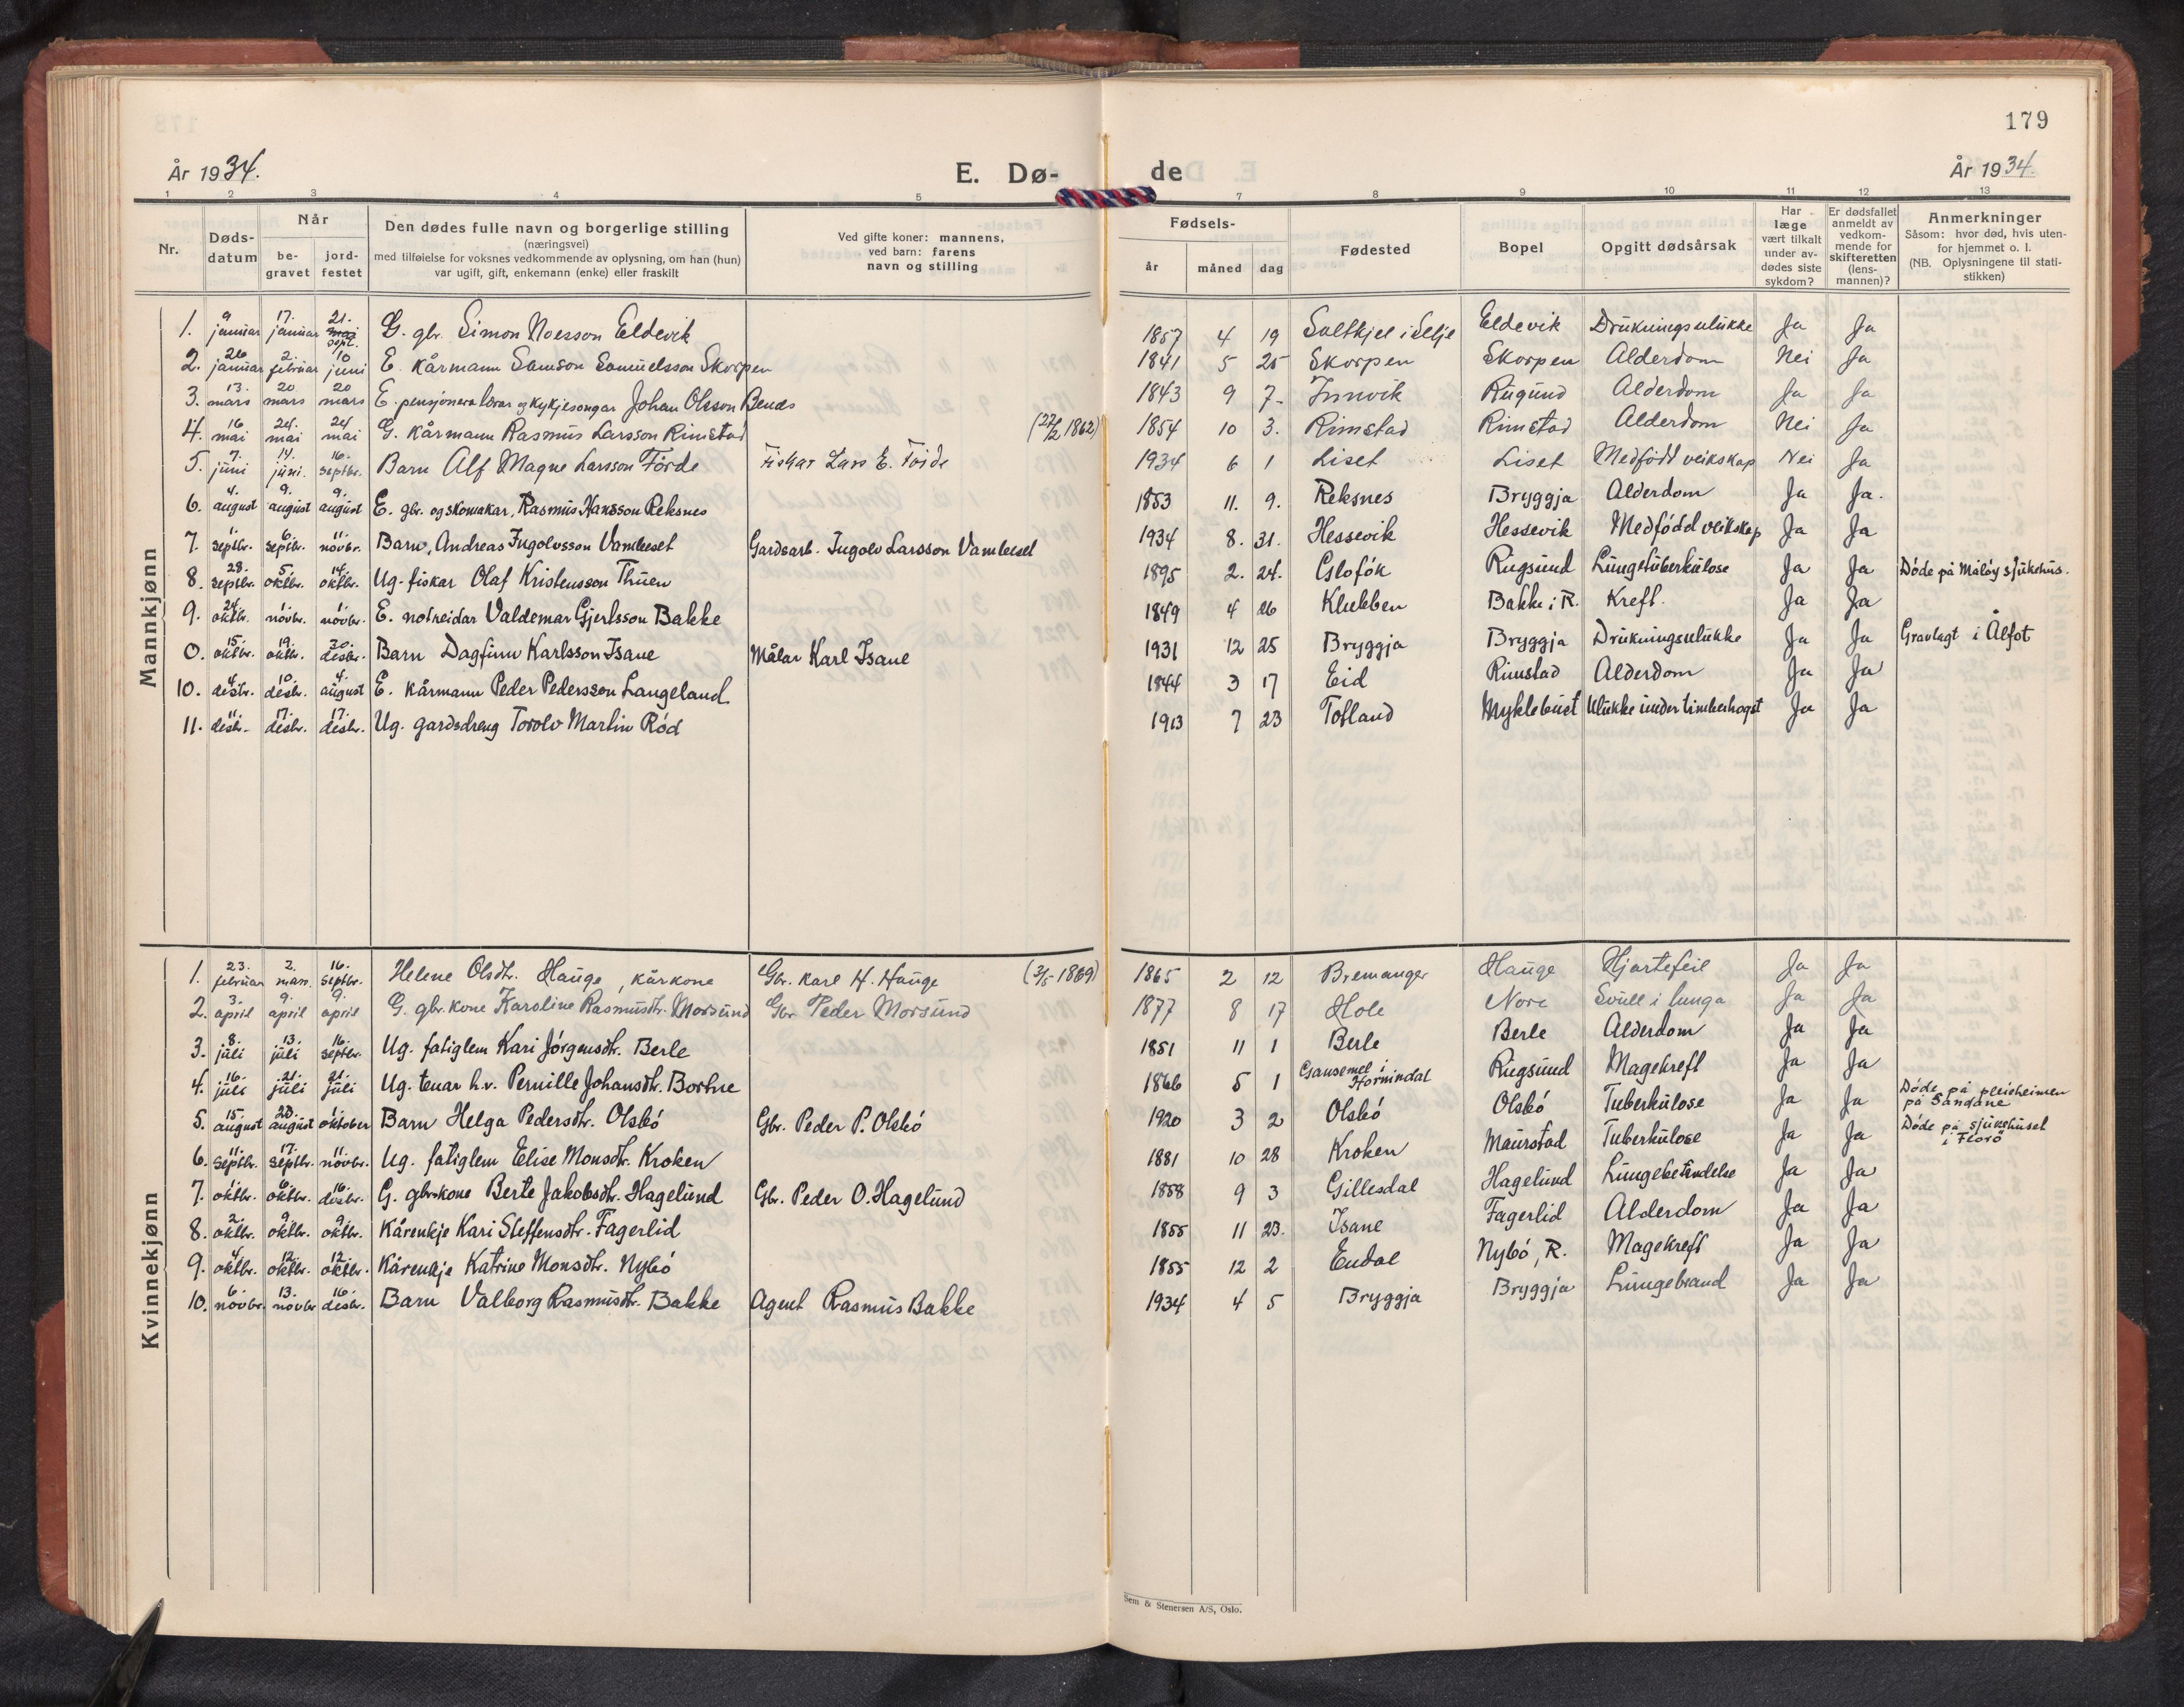 179
År 1934.
E. Dø-
de
År 1934.
1 2 3 4 5 7 8 9 10 11 12 13
Nr.
Døds-
datum
Når
be-
gravet
jord-
festet
Den dødes fulle navn og borgerlige stilling
(næringsvei)
med tilføielse for voksnes vedkommende av oplysning, om han (hun)
var ugift, gift, enkemann (enke) eller fraskilt
Ved gifte koner: mannens,
ved barn: farens
navn og stilling
Fødsels-
år måned dag
Fødested
Bopel
Opgitt dødsårsak
Har
læge
vært tilkalt
under av-
dødes siste
sykdom?
Er dødsfallet
anmeldt av
vedkom-
mende for
skifteretten
(lens-
mannen)?
Anmerkninger
Såsom: hvor død, hvis uten-
for hjemmet o. l.
(NB. Oplysningene til stati-
stikken)
Mannkjønn
1. 9 januar 17. januar 21. mai sept. G. gbr. Simon Moesson Eldevik 1857 4 19 Saltkjel i Selje Eldevik Drukningsulukke Ja Ja
2. 26 januar 2. februar 10 juni E. kårmann Samson Samuelsson Skorpen 1841 5 25 Skorpen Skorpen Alderdom Nei Ja
3. 13. mars 20 mars 20 mars E. pensjonera lærar og kykjesongar Johan Olsson Bendes 1843 9 7- Innvik Rugund Alderdom Ja Ja
4. 16 mai 24. mai 24 mai G. kårmann Rasmus Larsson Rimstad (27/2 1862) 1854 10 3. Rimstad Rimstad Alderdom Nei Ja
5. 7. juni 14. juni. 16. septbr. Barn Alf Magne Larsson Förde Fiskar Lars E. Förde 1934 6 1 Liset Liset Medfödd veikskap Nei Ja
6. 4. august 9. august 9. august E. gbr. og skomakar, Rasmus Hansson Reksnes 1853 11. 9. Reksnes Bryggja Alderdom Ja Ja.
7. 1. septbr. 6. septbr. 11. novbr. Barn, Andreas Ingolvsson Vamleset Gardsarb. Ingolv Larsson Vamleset 1934 8. 31. Hessevik Hessevik Medfödd veikskap Ja Ja
8. 28. septbr. 5. oktbr. 14. oktbr. Ug. fiskar Olaf Kristensson Thuen 1895 2. 24. Oslofök Rugsund Lungetuberkulose Ja Ja Döde på Måløy sjukehus.
9. 24. oktbr. 1. novbr. 1. novbr. E. notreidar Valdemar Gjertsson Bakke 1849 4 26 Klubben Bakke i R. Kreft. Ja Ja
0. 15. oktbr. 19. oktbr. 30. desbr. Barn Dagfinn Karlsson Isane Målar Karl Isane 1931 12 25 Bryggja Bryggja Drukningsulukke Ja Ja Gravlagt i Ålfot
10. 4. desbr. 10. desbr. 4. august E. kårmann Peder Pedersson Langeland 1844 3 17 Eid Rimstad Alderdom Ja Ja
11. 11. desbr. 17. desbr. 17. desbr. Ug. gardsdreng Torolv Martin Röd 1913 7 23 Tofland Myklebust Ulukke under timberhogst Ja Ja
Kvinnekjønn
1. 23. februar 2. mars. 16. septbr. Helene Olsdtr. Hauge, kårkone Gbr. Karl H. Hauge (3/5-1869) 1865 2 12 Bremanger Hauge Hjartefeil Ja Ja
2. 3. april 9. april 9. april G. gbr.kone Karoline Rasmusdtr. Morsund Gbr Peder Morsund 1877 8 17 Hole Nore Svull i lunga Ja Ja
3. 8. juli 13. juli 16. septbr. Ug. fatiglem Kari Jørgensdtr. Berle 1851 11 1 Berle Berle Alderdom Ja Ja
4. 16. juli 21. juli 21. juli Ug. tenar h.v. Pernille Johansdtr. Bortne 1866 5 1 Gausemel i Hornindal Rugsund Magekreft Ja Ja Döde på pleieheimen på Sandane
5. 15. august 23. august 1. oktober Barn Helga Pedersdtr. Olsbö Gbr. Peder P. Olsbö 1920 3 2 Olsbö Olsbö Tuberkulose Ja Ja Döde på sjukehuset i Florö
6. 11. septbr. 17. septbr. 11. novbr. Ug. fatiglem Elise Monsdtr. Kroken 1881 10 28 Kroken Maurstad Tuberkulose Ja Ja
7. 1. oktbr. 6. oktbr. 16. desbr. G. gbr.kone Berte Jakobsdtr. Hagelund Gbr. Peder O. Hagelund 1858 9 3 Gillesdal Hagelund Lungebetendelse Ja Ja
8. 2. oktbr. 9. oktbr. 9. oktbr. Kårenkje Kari Steffensdtr. Fagerlid 1855 11 23. Isane Fagerlid Alderdom Ja Ja
9. 4. oktbr. 12. oktbr. 12. oktbr. Kårenkje Katrine Monsdtr. Nybö 1855 12 2 Endal Nybö, R. Magekreft Ja Ja
10. 6. novbr. 13. novbr 16. desbr. Barn Valborg Rasmusdtr. Bakke Agent Rasmus Bakke 1934 4 5 Bryggja Bryggja Lungebrand Ja Ja
Sem & Stenersen A/S, Oslo.